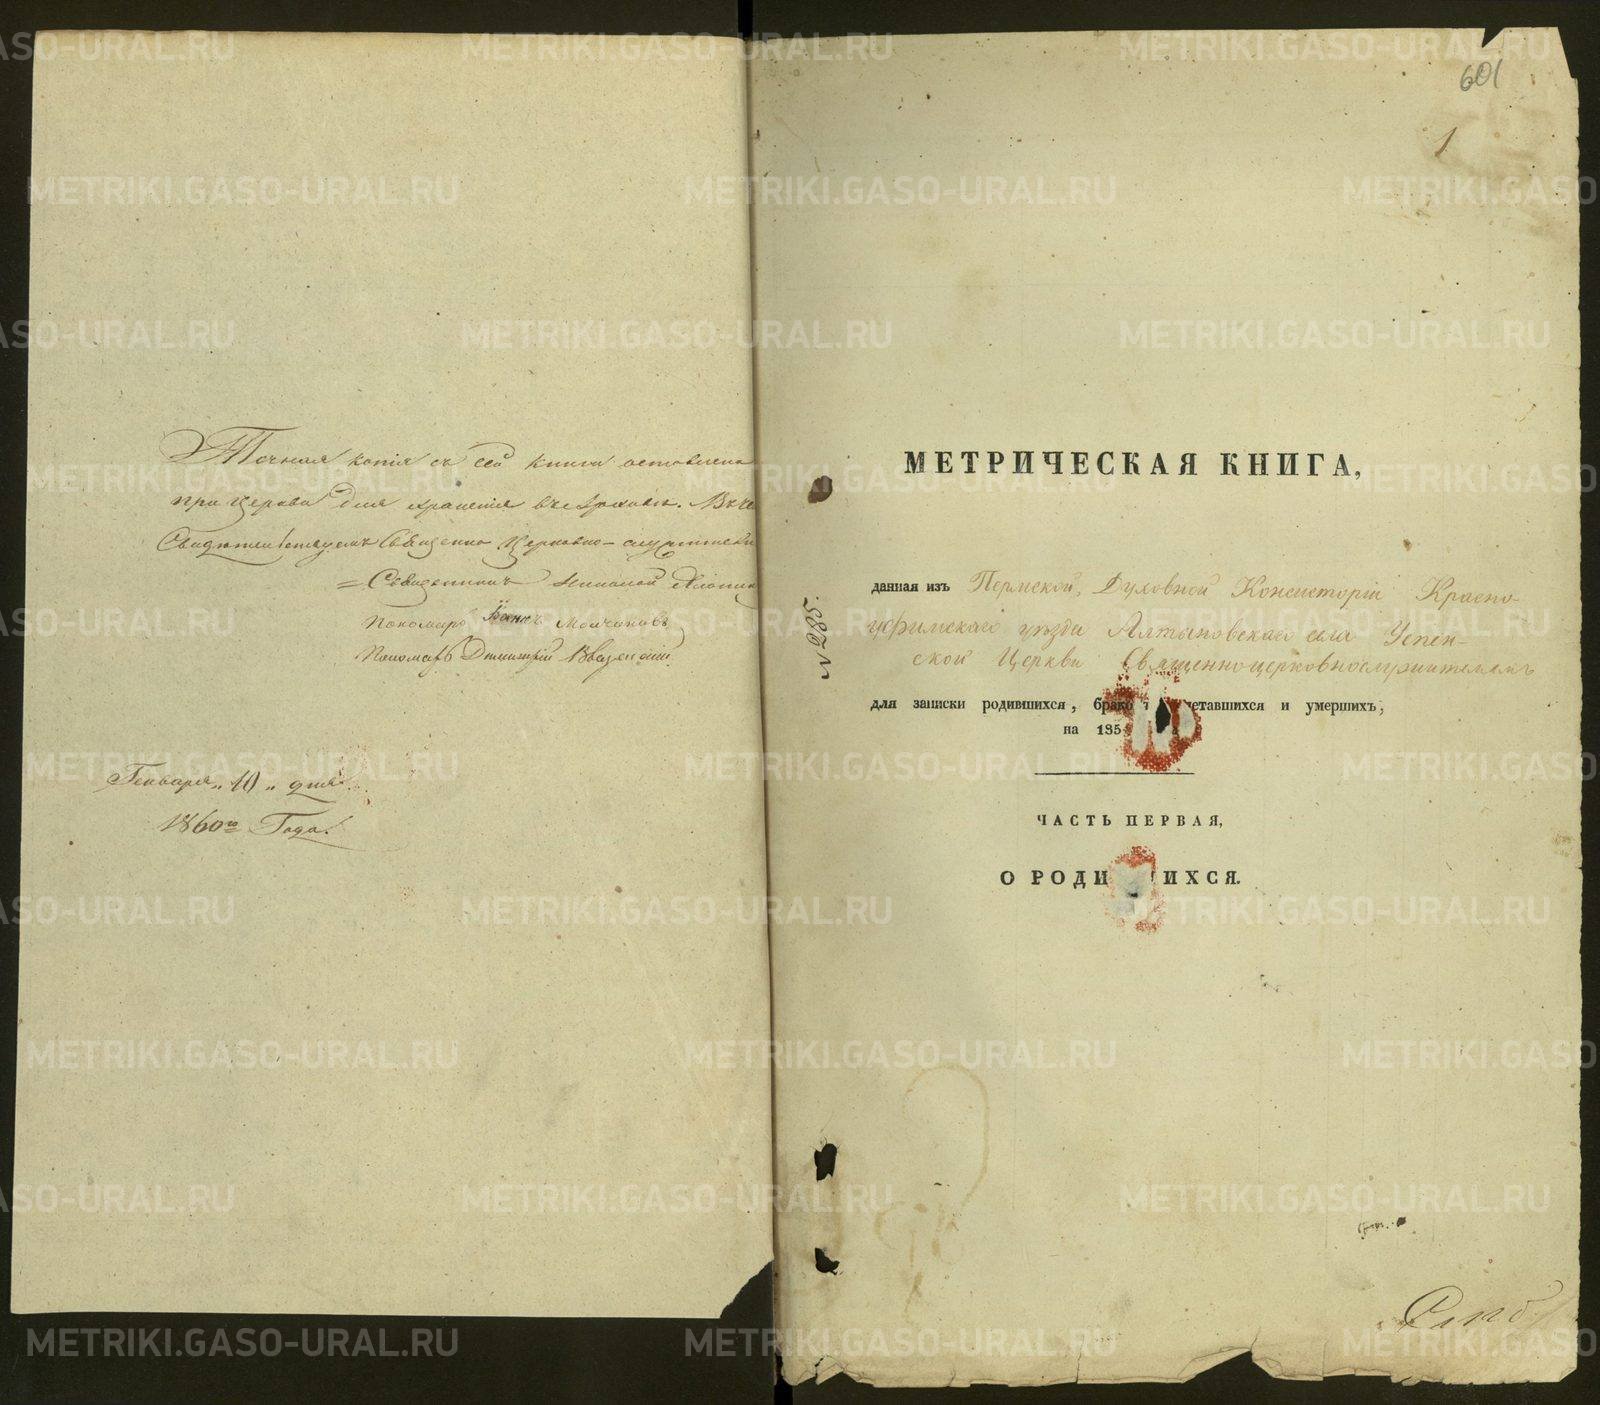 Точная копія съ сей книги оставлена
при церкви для храненія въ Архивѣ. Въ че
Свидѣтельствуемъ Священно Церковно-служители
Священникъ Николай
Пономарь Молчановъ
Пономарь Димитрій Введенскій
Генваря „10„ дня
1860го Года.
601
1
МЕТРИЧЕСКАЯ КНИГА,
данная изъ Пермской Духовной Консисторіи Красно-
уфимскаго уѣзда Алтыновскаго села Успен-
ской Церкви Священноцерковнослужителямъ
для записки родившихся, брако четавшихся и умершихъ,
на 185
ЧАСТЬ ПЕРВАЯ,
О РОДИ ИХСЯ.
№ 285.
METRIKI.GASO-URAL.RU